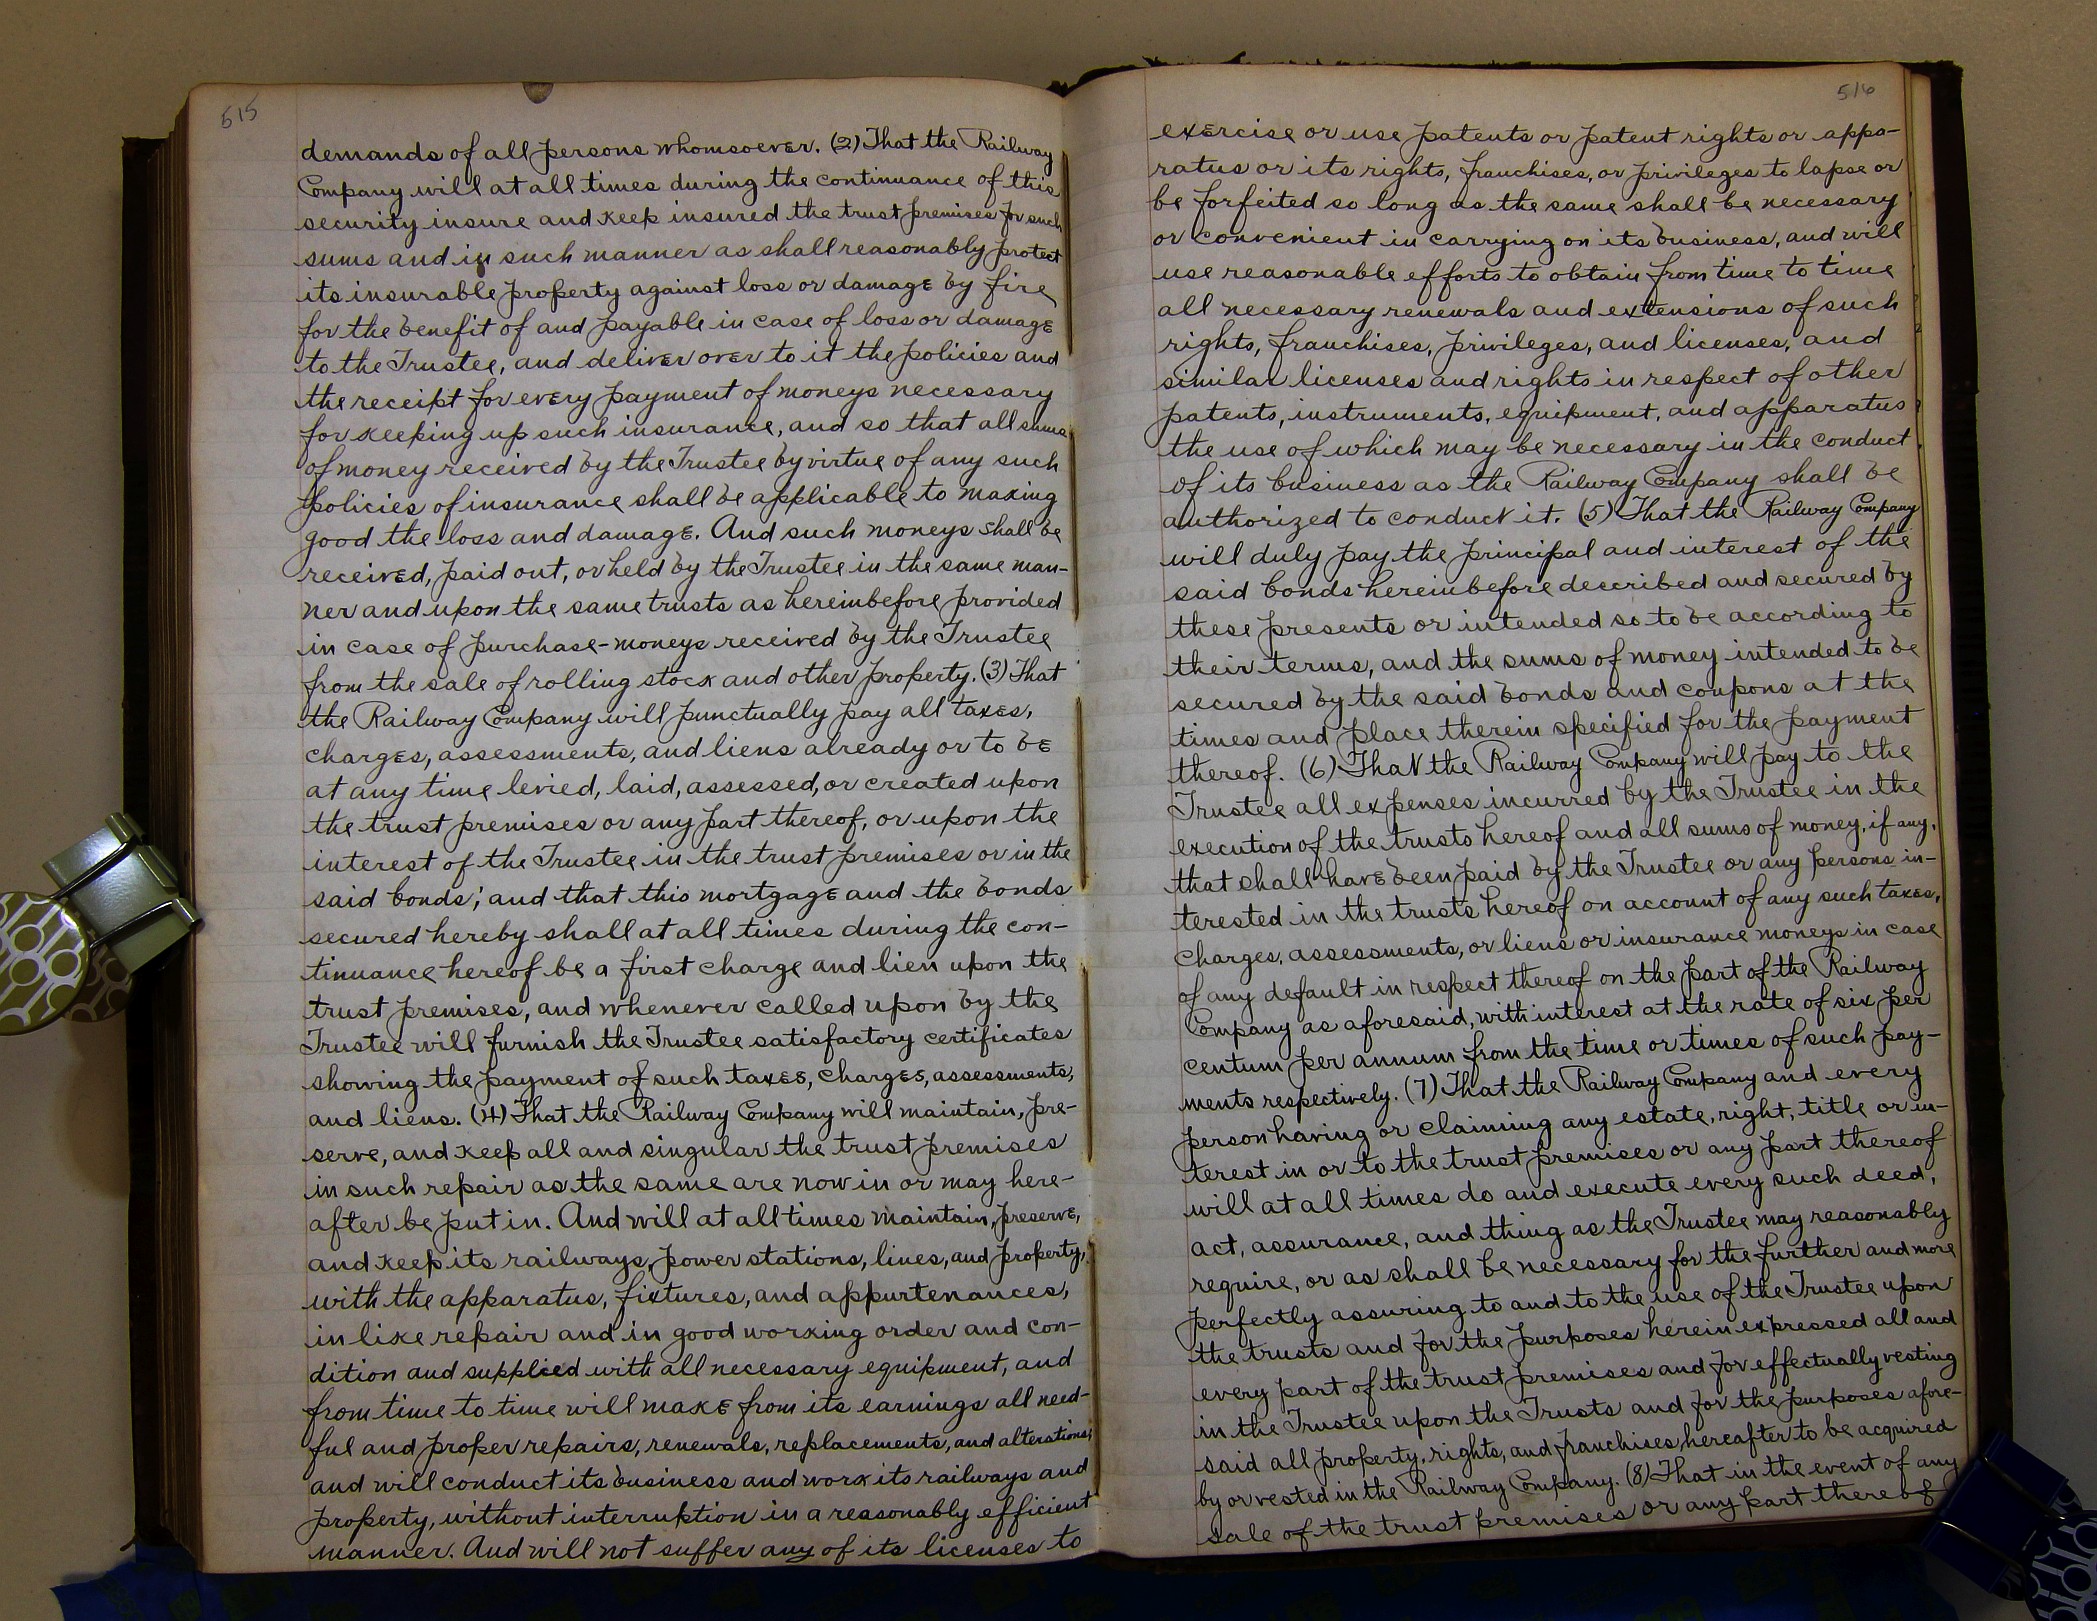 515
demands of all persons whomsoever. (2) That the Railway
Company will at all times during the continuance of this
security insure and keep insured the trust premises for such
sums and in such manner as shall reasonably protect
its insurable property against loss or damage by fire
for the benefit of and payable in case of loss or damage
to the Trustee, and deliver over to it the policies and
the receipt for every payment of moneys necessary
for keeping up such insurance, and so that all sums
of money received by the Trustee by virtue of any such
policies of insurance shall be applicable to making
good the loss and damage. And such moneys shall be
received, paid out, or held by the Trustee in the same man-
ner and upon the same trusts as hereinbefore provided
in case of purchase-moneys received by the Trustee
from the sale of rolling stock and other property. (3) That
the Railway Company will punctually pay all taxes,
charges, assessments, and liens already or to be
at any time levied, laid, assessed, or created upon
the trust premises or any part thereof, or upon the
interest of the Trustee in the trust premises or in the
said bonds; and that this mortgage and the bonds
secured hereby shall at all times during the con-
tinuance hereof be a first charge and lien upon the
trust premises, and whenever called upon by the
Trustee will furnish the Trustee satisfactory certificates
showing the payment of such taxes, charges, assessments,
and liens. (4) That the Railway Company will maintain, pre-
serve, and keep all and singular the trust premises
in such repair as the same are now in or may here-
after be put in. And will at all times maintain, preserve,
and keep its railways, power stations, lines, and property,
with the apparatus, fixtures, and appurtenances,
in like repair and in good working order and con-
dition and supplied with all necessary equipment, and
from time to time will make from its earnings all need-
ful and proper repairs, renewals, replacements, and alterations;
and will conduct its business and work its railways and
property, without interruption in a reasonably efficient
manner. And will not suffer any of its licenses to
516
exercise or use patents or patent rights or appa-
ratus or its rights, franchises, or privileges to lapse or
be forfeited so long as the same shall be necessary
or convenient in carrying on its business, and will
use reasonable efforts to obtain from time to time
all necessary renewals and extensions of such
rights, franchises, privileges, and licenses, and
similar licenses and rights in respect of other
patents, instruments, equipment, and apparatus
the use of which may be necessary in the conduct
of its business as the Railway Company shall be
authorized to conduct it. (5) That the Railway Company
will duly pay the principal and interest of the
said bonds hereinbefore described and secured by
these presents or intended so to be according to
their terms, and the sums of money intended to be
secured by the said bonds and coupons at the
times and place therein specified for the payment
thereof. (6) That the Railway Company will pay to the
Trustee all expenses incurred by the Trustee in the
execution of the trusts hereof and all sums of money, if any,
that shall have been paid by the Trustee or any persons in-
terested in the trusts hereof on account of any such taxes,
charges, assessments, or liens or insurance moneys in case
of any default in respect thereof on the part of the Railway
Company as aforesaid, with interest at the rate of six per
centum per annum from the time or times of such pay-
ments respectively. (7) That the Railway Company and every
person having or claiming any estate, right, title or in-
terest in or to the trust premises or any part thereof
will at all times do and execute every such deed,
act, assurance, and thing as the Trustee may reasonably
require, or as shall be necessary for the further and more
perfectly assuring to and to the use of the Trustee upon
the trusts and for the purposes herein expressed all and
every part of the trust premises and for effectually vesting
in the Trustee upon the Trusts and for the purposes afore-
said all property, rights, and franchises hereafter to be acquired
by or vested in the Railway Company. (8) That in the event of any
sale of the trust premises or any part thereof